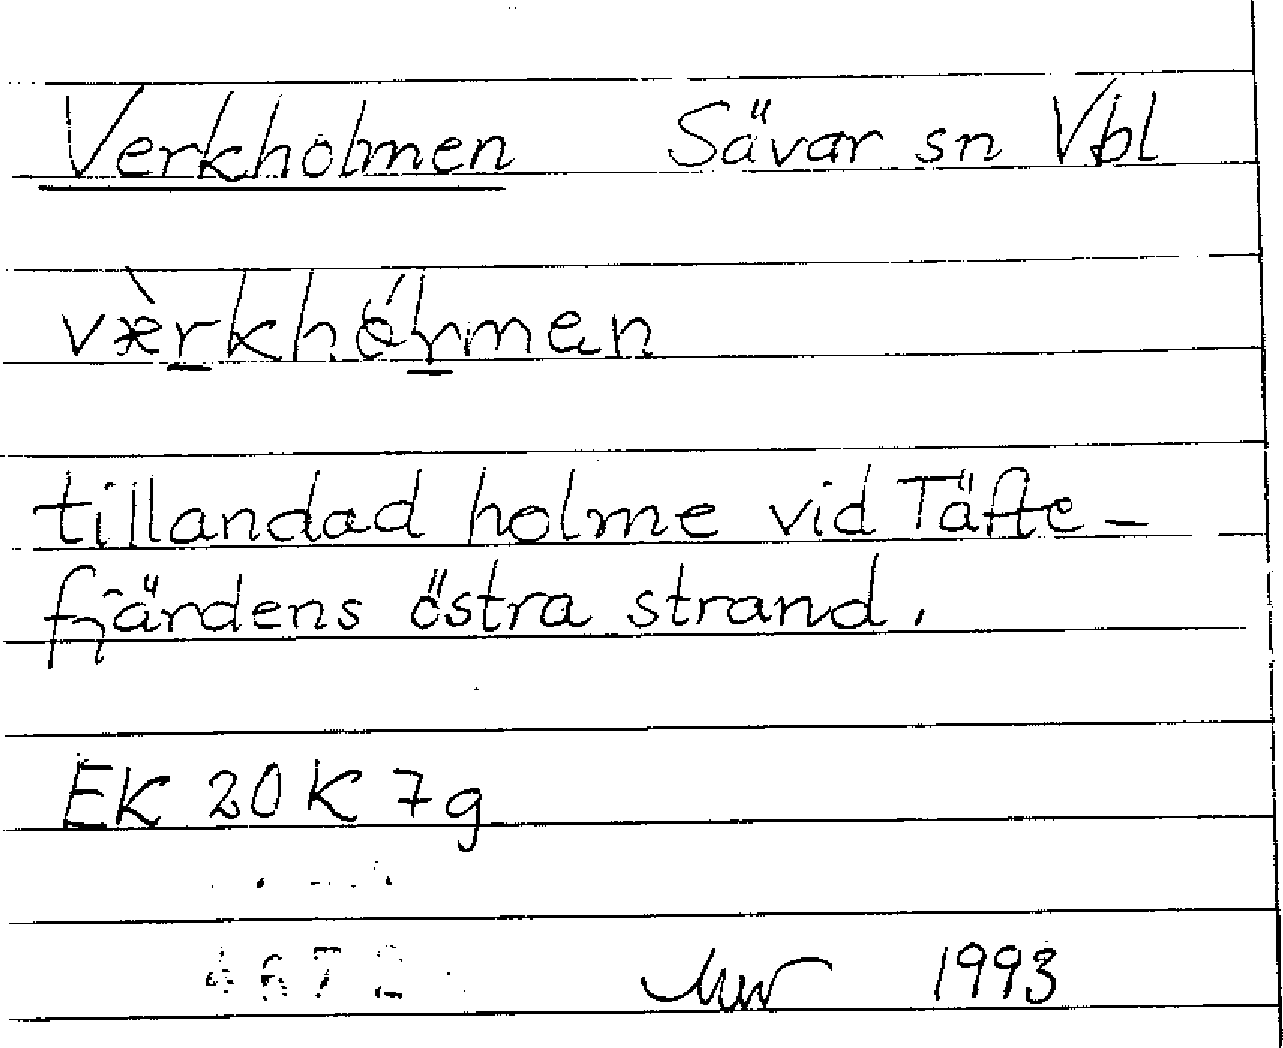 Verkholmen Sävar sn Vbl
tillandad holme vid Täfte-
fjärdens östra strand.
EK 20 K 7g
4672 1993